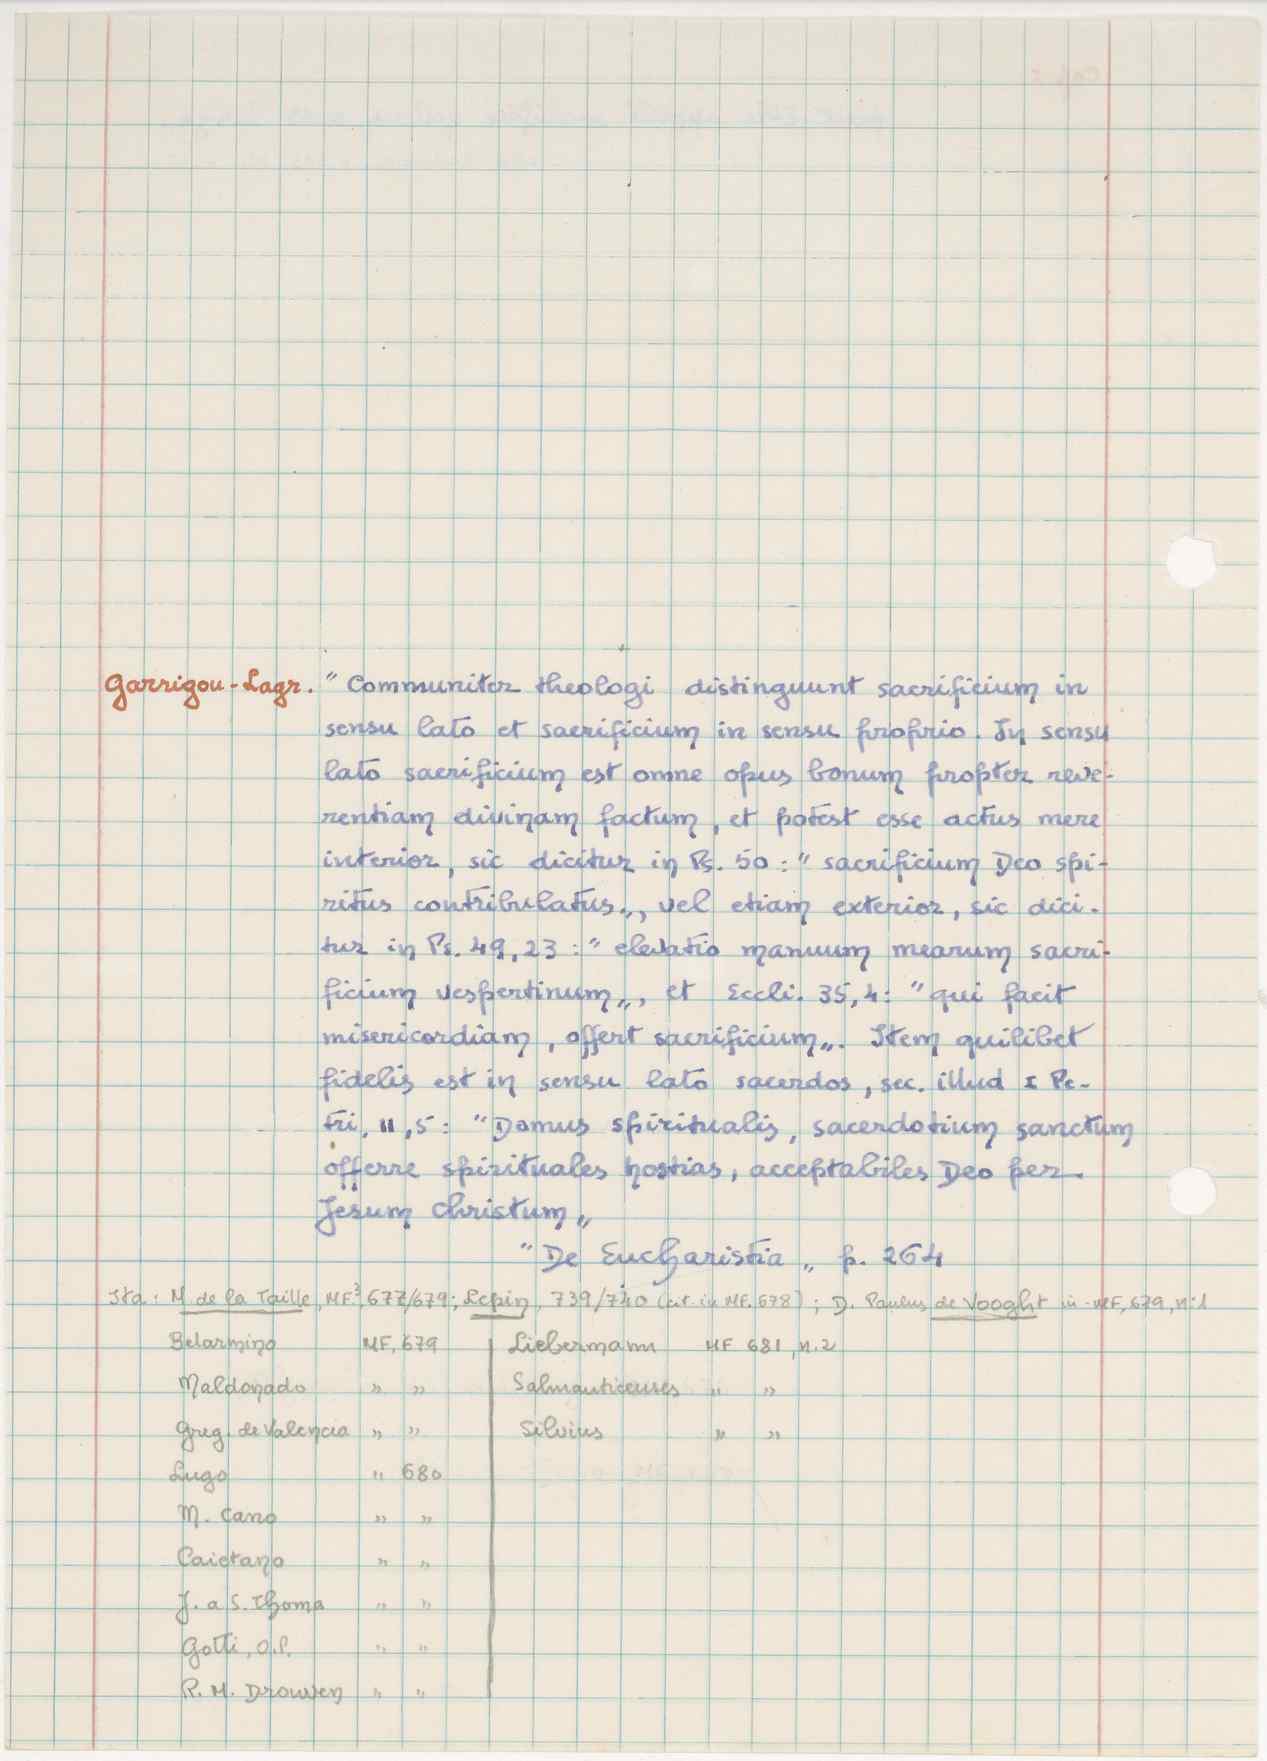 Garrigou-Lagr. " Communiter theologi distinguunt sacrificium in
sensu lato et sacrificium in sensu proprio. In sensu
lato sacrificium est omne opus bonum propter reve-
rentiam divinam factum, et potest esse actus mere
interior, sic dicitur in Ps. 50 : " sacrificium Deo spi-
ritus contribulatus „, vel etiam exterior, sic dici-
tur in Ps. 49, 23 : " elevatio manuum mearum sacri-
ficium vespertinum „, et Eccli. 35, 4 : " qui facit
misericordiam, offert sacrificium „. Item quilibet
fidelis est in sensu lato sacerdos, sec. illud I Pe-
tri, II, 5 : " Domus spiritualis, sacerdotium sanctum
offerre spirituales hostias, acceptabiles Deo per
Jesum Christum „
" De Eucharistia „ p. 264
Ita : M. de la Taille, MF³, 677/679 ; Lepin, 739/740 (cit. in MF. 678) ; D. Paulus de Vooght in MF, 679, n.1
Belarmino MF, 679 Liebermann MF 681, n.2
Maldonado " " Salmanticenses " "
Greg. de Valencia " " Silvius " "
Lugo " 680
M. Cano " "
Caietano " "
J. a S. Thoma " "
Gotti, O.P. " "
R. M. Drouven " "